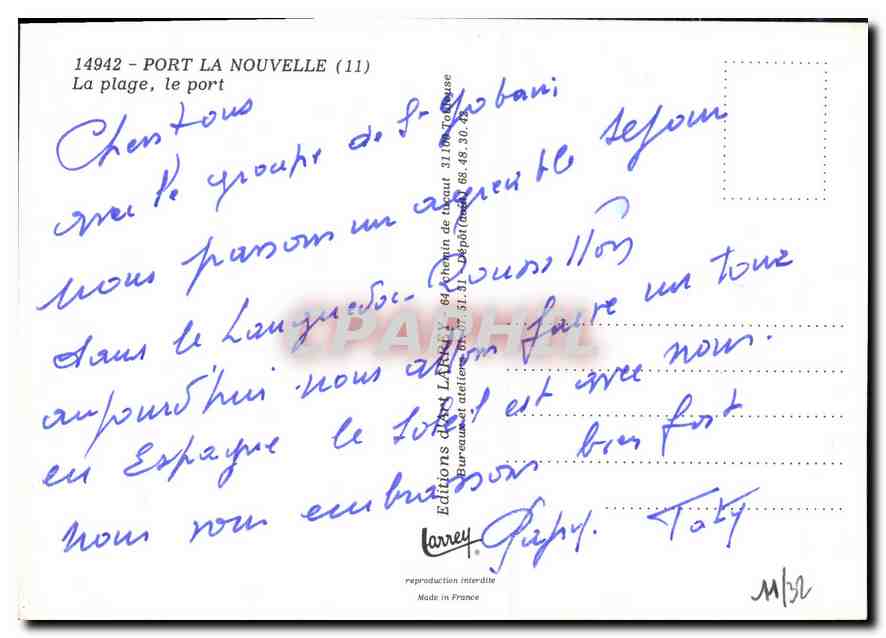 14942 - PORT LA NOUVELLE (11)
La plage, le port
Chers tous
avec le groupe de St Gobain
nous passons un agreable sejour
dans le Languedoc-Roussillon
aujourd'hui nous allons faire un tour
en Espagne le soleil est avec nous.
nous vous embrassons bien fort
Papy. Taty
Editions d'Art LARREY - 64, chemin de tucaut 31100 Toulouse
Bureaux et ateliers 61.07.51.31 - Dépôt 68.48.30.42
CPARHIL
Larrey
reproduction interdite
Made in France
11/32